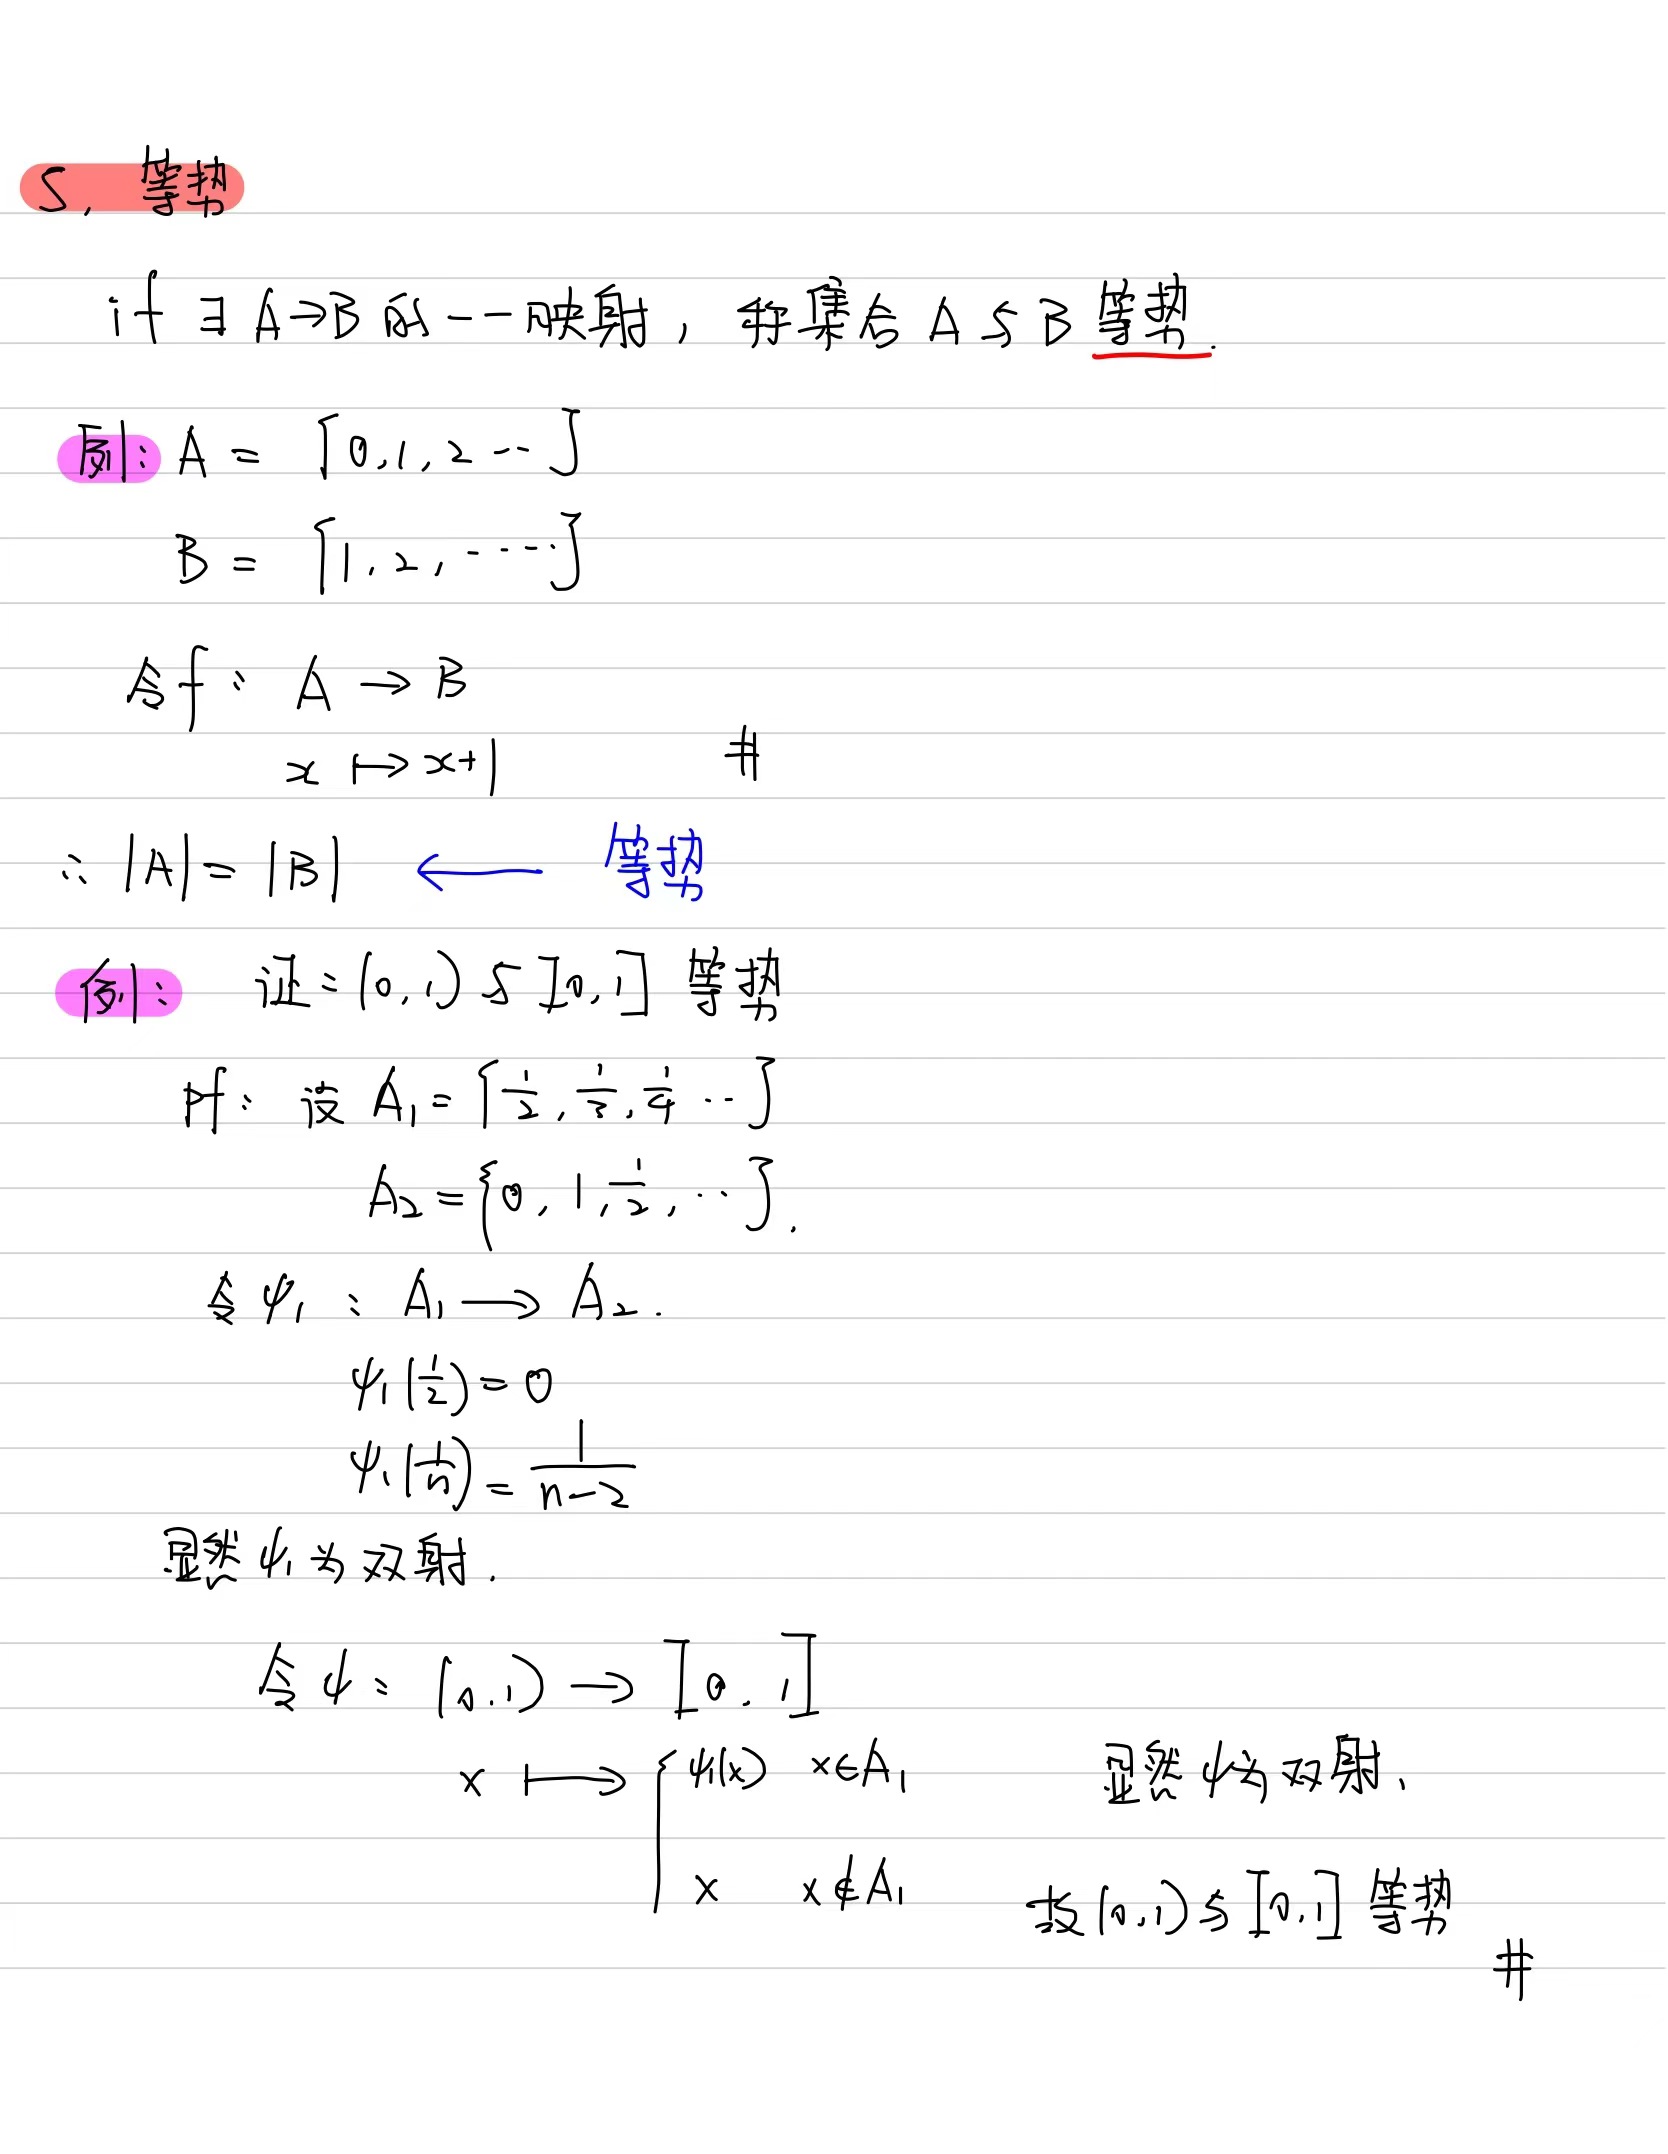 5. 等势
if ∃ A→B 的一一映射, 称集合 A 与 B 等势.
例: A = {0, 1, 2 …}
B = {1, 2, ……}
令 f: A → B
x ↦ x+1 #
∴ |A| = |B| ← 等势
例: 证: (0, 1) 与 [0, 1] 等势
pf: 设 A₁ = {1/2, 1/3, 1/4 …}
A₂ = {0, 1, 1/2, …}.
令 ψ₁ : A₁ → A₂.
ψ₁(1/2) = 0
ψ₁(1/n) = 1/(n-2)
显然 ψ₁ 为双射.
令 ψ: (0, 1) → [0, 1]
x ↦ { ψ₁(x) x∈A₁ 显然 ψ 为双射.
x x∉A₁ 故 (0, 1) 与 [0, 1] 等势
#